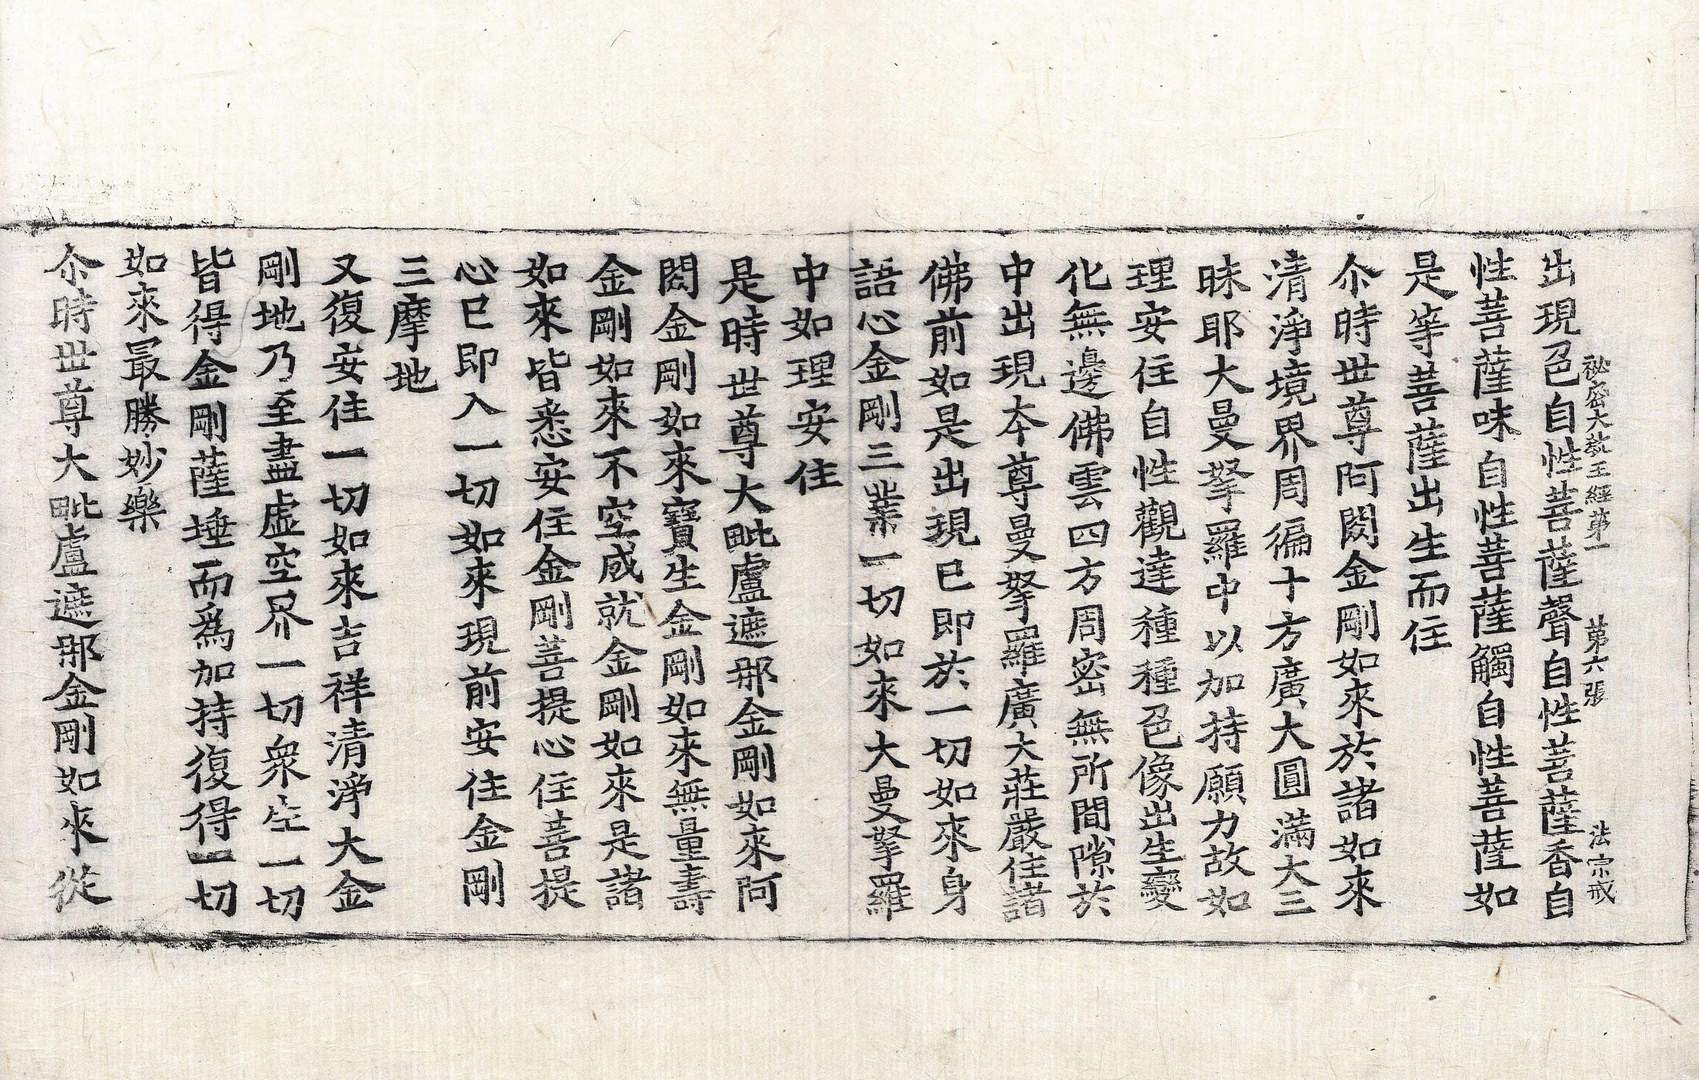 秘密大教王經第一　第六張　法宗戒
出現色自性菩薩聲自性菩薩香自
性菩薩味自性菩薩觸自性菩薩如
是等菩薩出生而住
尒時世尊阿閦金剛如來於諸如來
清淨境界周徧十方廣大圓滿大三
昧耶大曼拏羅中以加持願力故如
理安住自性觀達種種色像出生變
化無邊佛雲四方周密無所間隙於
中出現本尊曼拏羅廣大莊嚴住諸
佛前如是出現已即於一切如來身
語心金剛三業一切如來大曼拏羅
中如理安住
是時世尊大毗盧遮那金剛如來阿
閦金剛如來寶生金剛如來無量壽
金剛如來不空成就金剛如來是諸
如來皆悉安住金剛菩提心住菩提
心已即入一切如來現前安住金剛
三摩地
又復安住一切如來吉祥清淨大金
剛地乃至盡虛空界一切衆生一切
皆得金剛薩埵而爲加持復得一切
如來最勝妙樂
尒時世尊大毗盧遮那金剛如來從